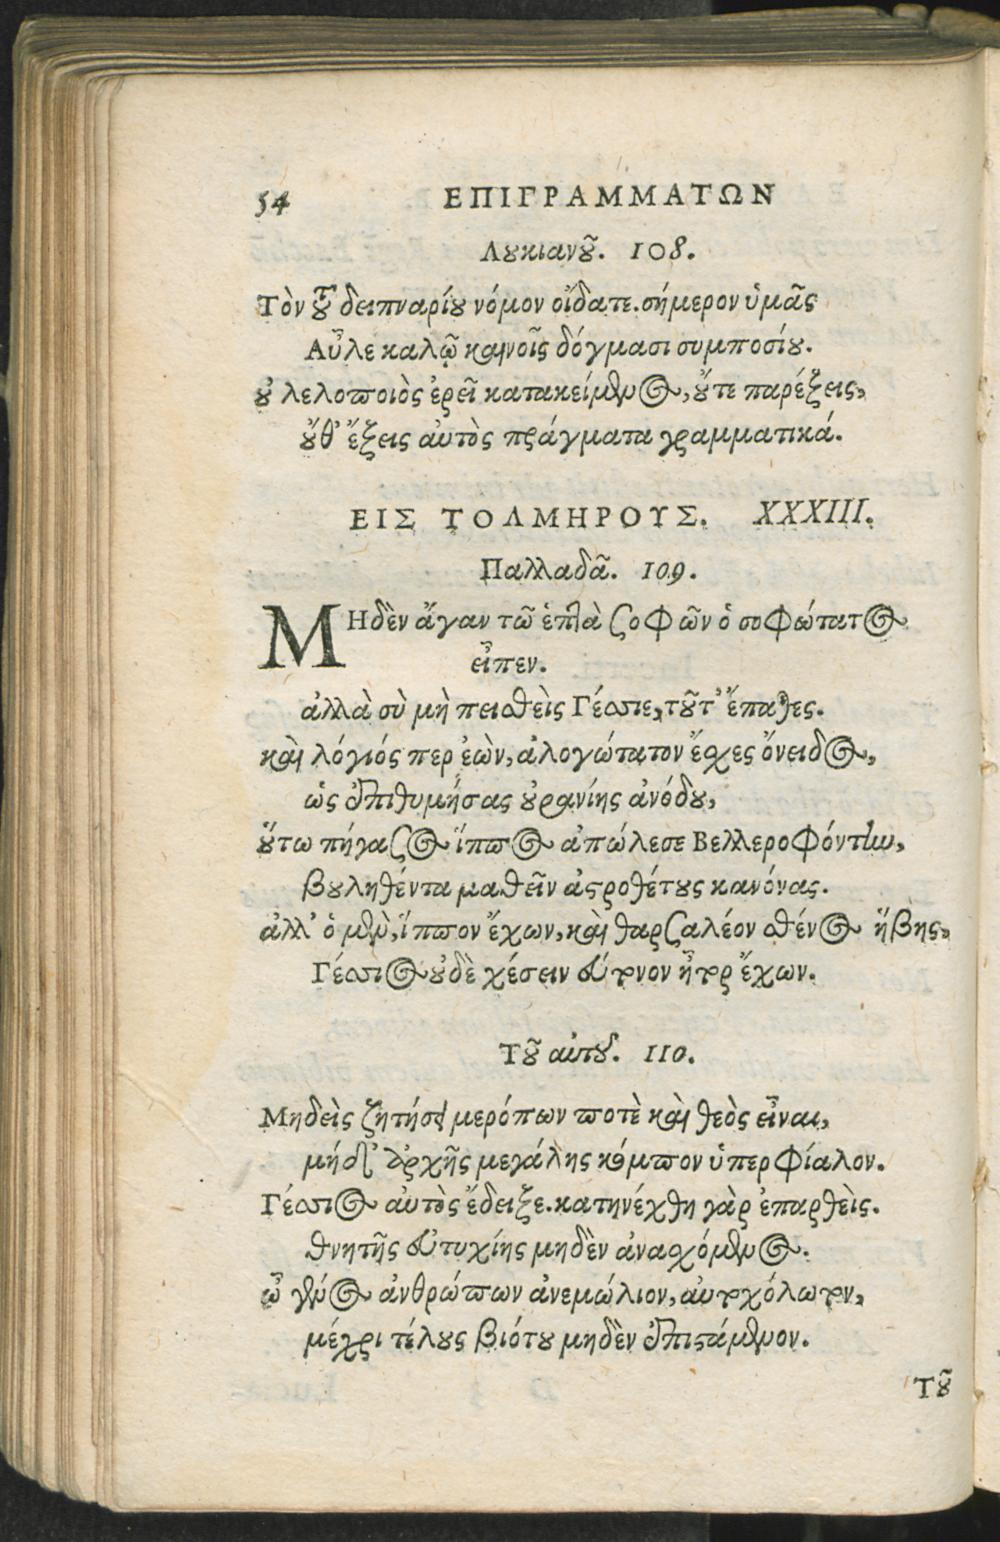 54 ΕΠΙΓΡΑΜΜΑΤΩΝ
Λουκιανοῦ. 108.
Τὸν τοῦ δειπναρίου νόμον οἴδατε. σήμερον ὑμᾶς
Αὖλε καλῶ καινοῖς δόγμασι συμποσίου.
οὐ λελοποιὸς ἐρεῖ κατακείμενος, οὔτε παρέξεις,
οὔθ' ἕξεις αὐτὸς πράγματα γραμματικά.
ΕΙΣ ΤΟΛΜΗΡΟΥΣ. XXXIII.
Παλλαδᾶ. 109.
ΜΗδὲν ἄγαν τῶ ἑπτὰ σοφῶν ὁ σοφώτατος
εἶπεν.
ἀλλὰ σὺ μὴ πεισθεὶς Γέσσιε, τοῦτ' ἔπαθες.
καὶ λόγιός περ ἐὼν, ἀλογώτατον ἔσχες ὄνειδος,
ὡς ἐπιθυμήσας οὐρανίης ἀνόδου,
οὕτω πήγασος ἵππος ἀπώλεσε Βελλεροφόντην,
βουληθέντα μαθεῖν ἀστροθέτους κανόνας.
ἀλλ' ὁ μὲν, ἵππον ἔχων, καὶ θαρσαλέον σθένος ἥβης,
Γέσσιος οὐδὲ χέσειν εὔτονον ἦτορ ἔχων.
Τοῦ αὐτοῦ. 110.
Μηδεὶς ζητήσῃ μερόπων ποτὲ καὶ θεὸς εἶναι,
μήδ' ἀρχῆς μεγάλης κόμπον ὑπερφίαλον.
Γέσσιος αὐτὸς ἔδειξε. κατηνέχθη γὰρ ἐπαρθεὶς.
θνητῆς εὐτυχίης μηδὲν ἀνασχόμενος.
ὦ γένος ἀνθρώπων ἀνεμώλιον, αὐτοχόλωτον,
μέχρι τέλους βιότου μηδὲν ἐπιστάμενον.
Τοῦ